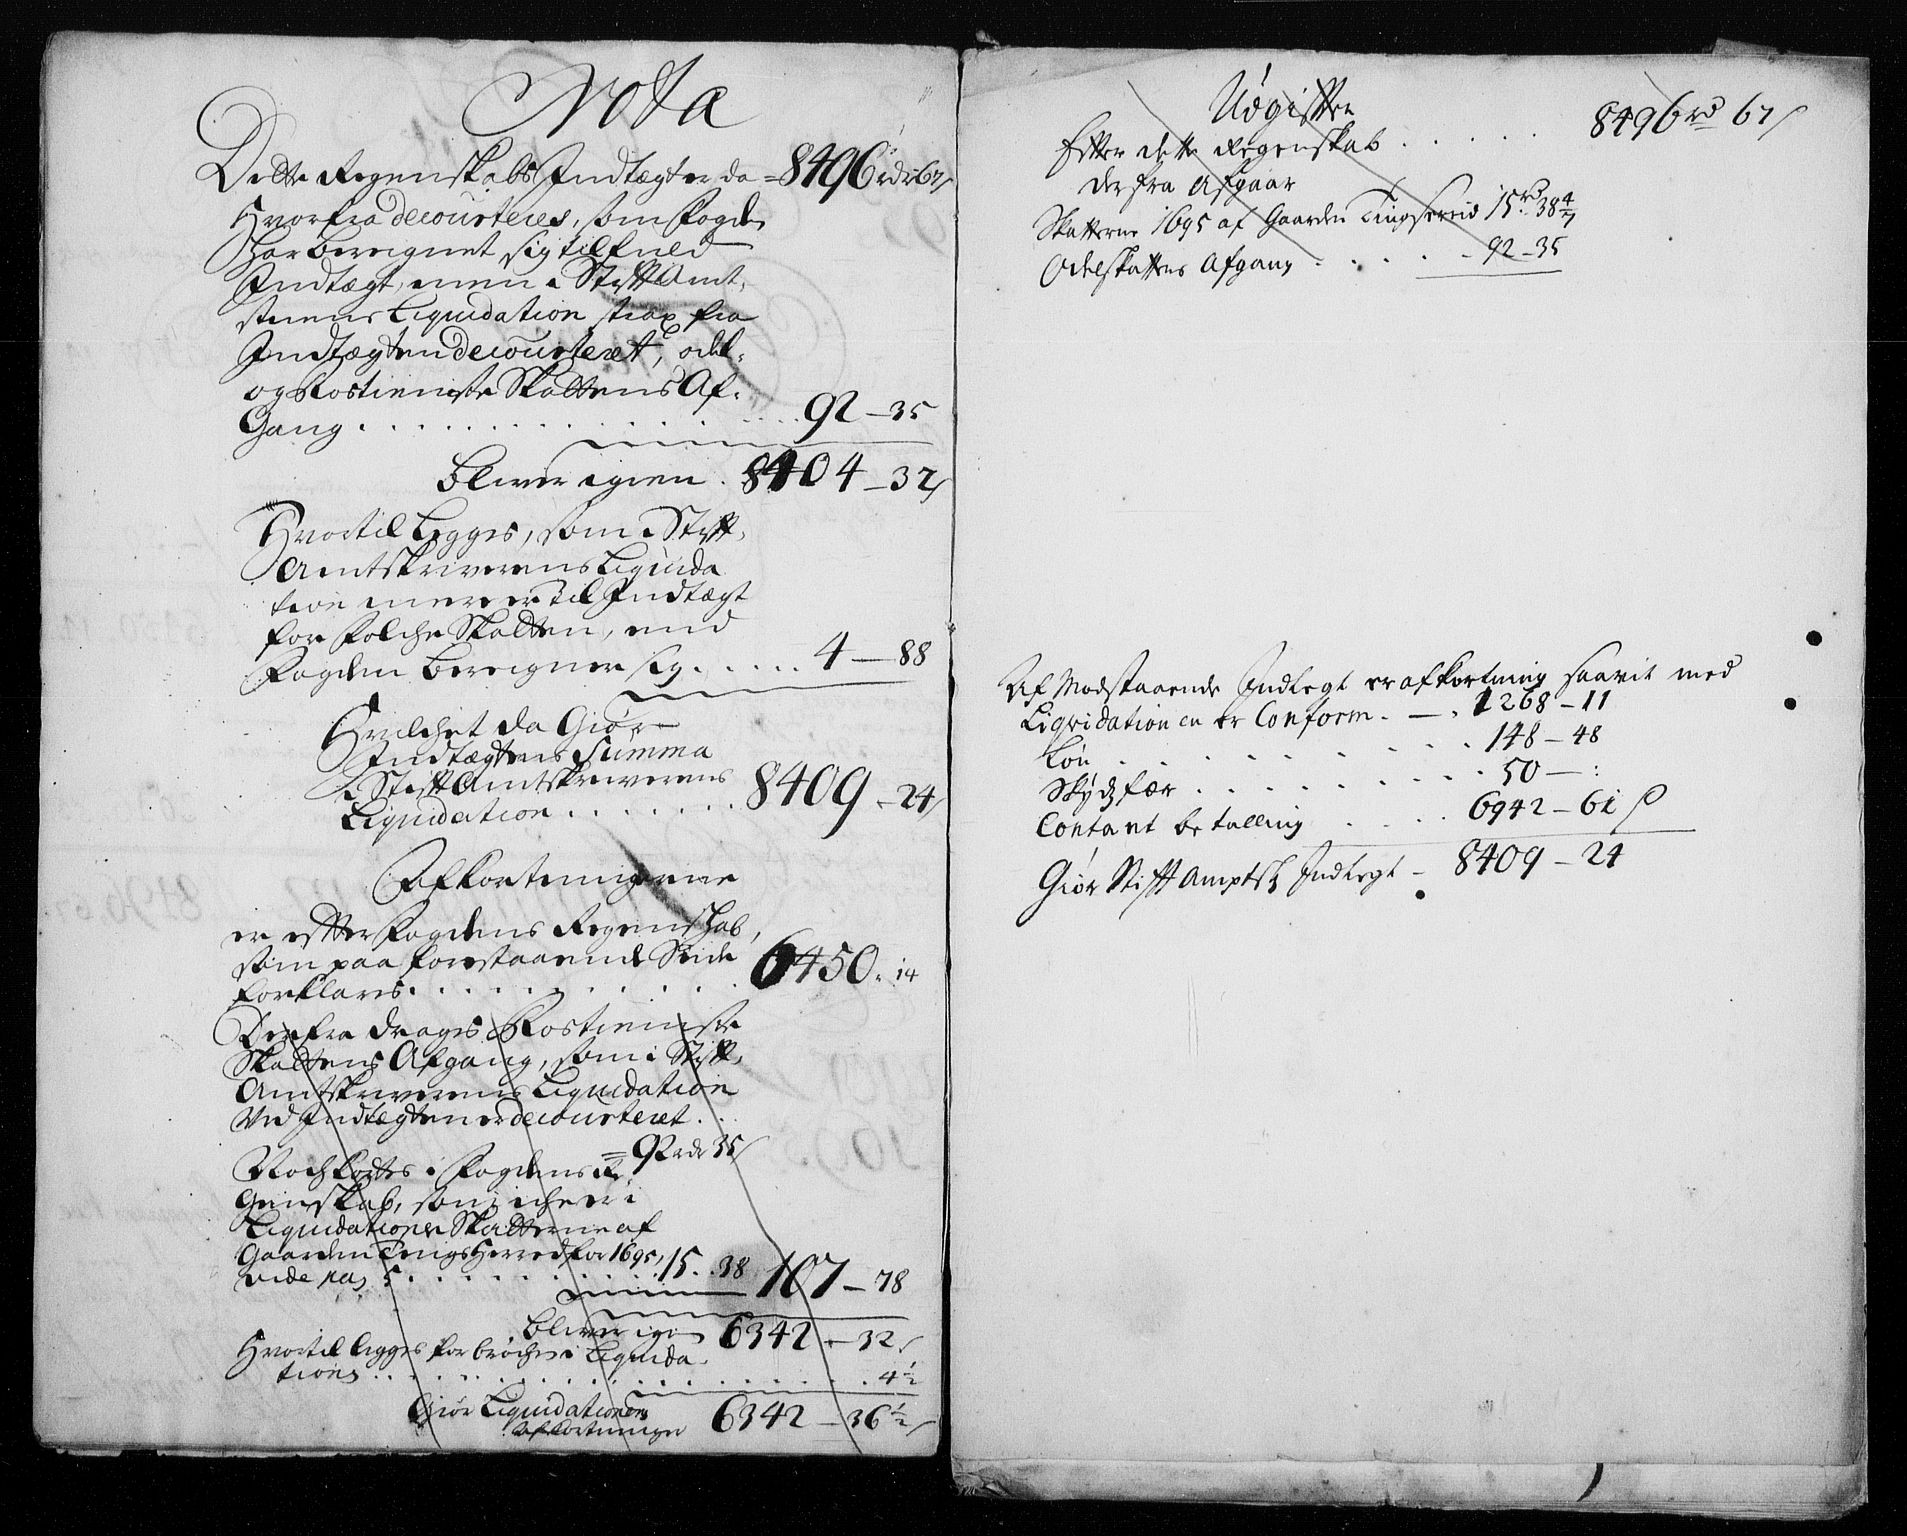 Nota
Dette Regenskabs Indtægter da = 8496 rdr 67 s
Hvorfra decourteres, som Fogden
har beregnet sig til fuld
Indtægt, men i StiftAmt-
stuens Liquidation strax fra
Indtægten decourteret, odel-
og Rostieniste Skattens Af-
Gang . . . . 92 – 35
Bliver igien . 8404 – 32 s
Hvortil Legges, som i Stift-
Amtskriverens Liquida
tion mere er til Indtægt
for Folche Skatten, end
Fogden beregner sig . . . . 4 – 88
Hvilchet da Giør
Indtægtens Summa
i StiftAmtskriverens
Liquidation . . . . 8409 – 24 s
Afkortningerne
er efter Fogdens Regenschab,
som paa forestaaende Side
forklares . . . . 6450 – 14
Derfra drages Rostieniste
Skattens Afgang, som i Stift-
Amtskriverens Liquidation
Ved Indtægten er decourteret . .
= 92 rdr 35 s
Noch kortes i Fogdens Re
Genskab, som iche er i
Liquidationen Skatterne af
Gaarden Tings Herred for 1695,
vide pag 5 . . . . 15 . . 38 107 – 78
Bliver igien 6342 – 32 s
Hvortil legges for brøchen i Liquida-
tionen . . . . 4 1/2
Giør Liquidationens
Afkortninger 6342 – 36 1/2 s
Udgiften
Efter dette Regenskab . . . . 8496 rd 67 s
derfra Afgaar
Skatterne 1695 af Gaarden 15 rd 38 4/7
Odelskattens Afgang . . . . 92 – 35
Af Modstaaende Indtegt er afkortning saavit med
Liqvidationen er Conform . – . 1268 – 11
Løn . . . . 148 – 48
Skydsfær . . . . 50 – :
Contant betalling . . . . 6942 – 61 s
Giør Stift Amptsk Indtegt – 8409 – 24